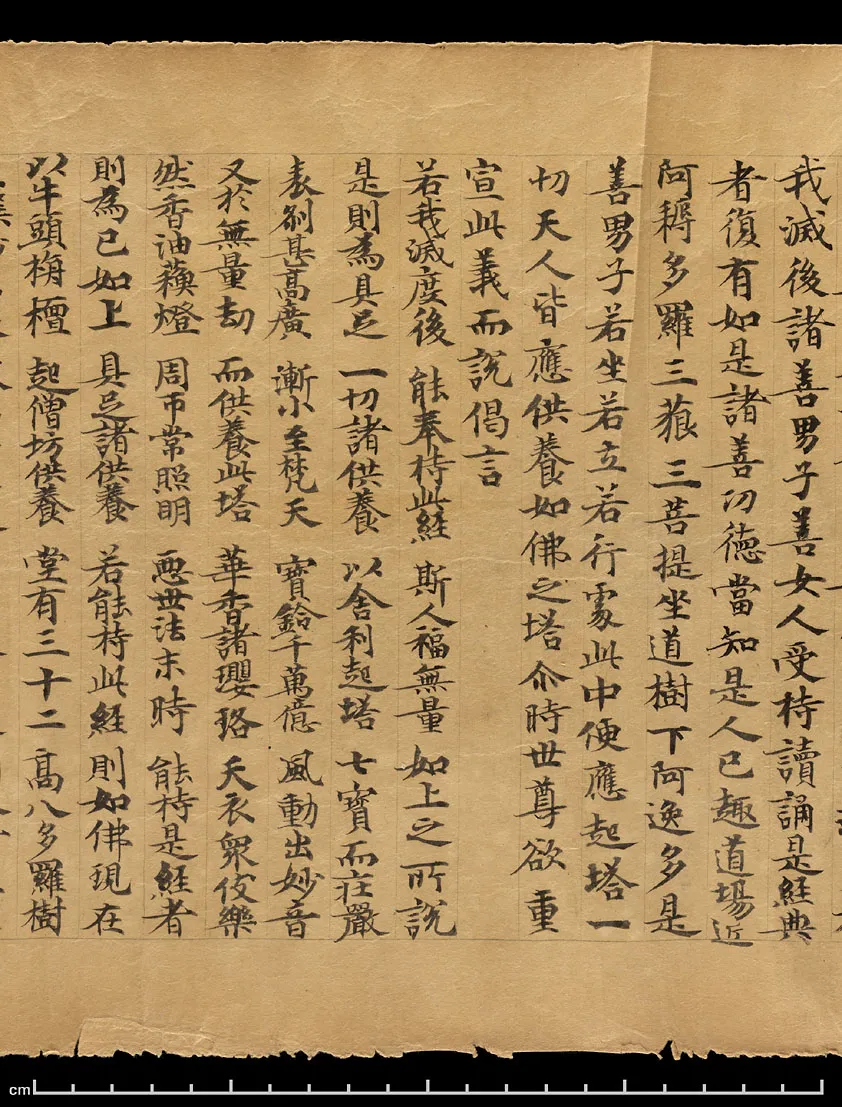 我滅後諸善男子善女人受持讀誦是經典
者復有如是諸善功德當知是人已趣道場近
阿耨多羅三藐三菩提坐道樹下阿逸多是
善男子若坐若立若行處此中便應起塔一
切天人皆應供養如佛之塔尒時世尊欲重
宣此義而說偈言
若我滅度後 能奉持此經 斯人福無量 如上之所說
是則為具足 一切諸供養 以舍利起塔 七寶而莊嚴
表剎甚高廣 漸小至梵天 寶鈴千萬億 風動出妙音
又於無量劫 而供養此塔 華香諸瓔珞 天衣眾伎樂
然香油蘓燈 周帀常照明 惡世法末時 能持是經者
則為已如上 具足諸供養 若能持此經 則如佛現在
以牛頭栴檀 起僧坊供養 堂有三十二 高八多羅樹